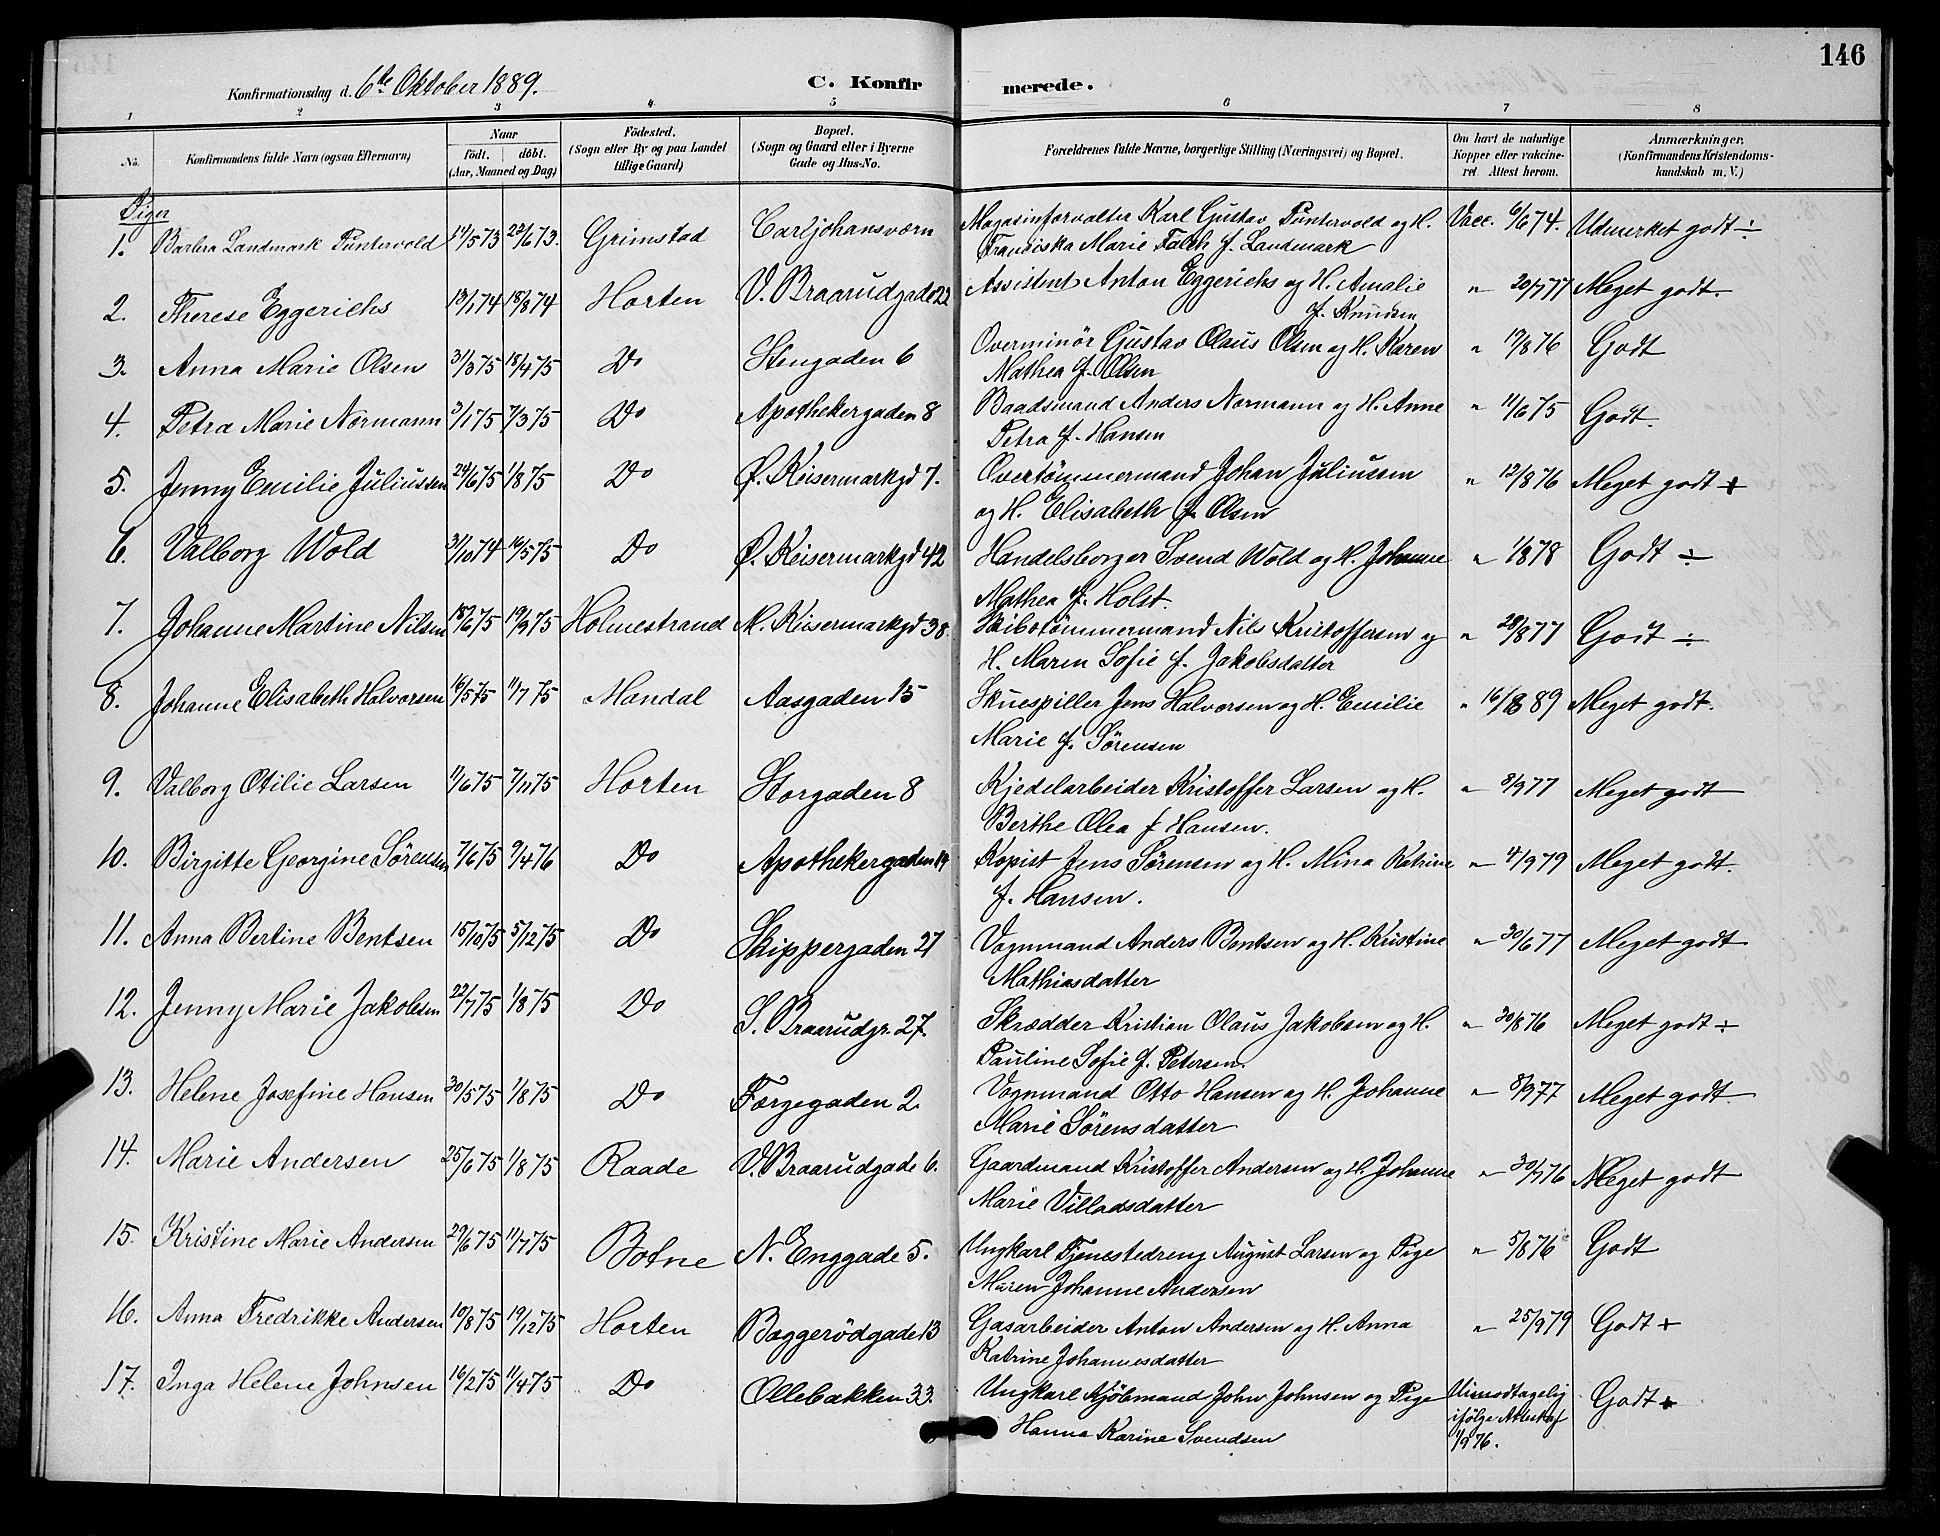 146
Konfirmationsdag d. 6te Oktober 1889. C. Konfir merede.
1 2 3 4 5 6 7 8
No. Konfirmandens fulde Navn (ogsaa Efternavn) Naar født. døbt. (Aar, Maaned og Dag) Födested. (Sogn eller By og paa Landet tillige Gaard) Bopæl. (Sogn og Gaard eller i Byerne Gade og Hus-No. Forældrenes fulde Navne, borgerlige Stilling (Næringsvei) og Bopæl. Om havt de naturlige Kopper eller vakcineret Attest herom. Anmærkninger. (Konfirmandens Kristendomskundskab m. V.)
Piger
1. Barbra Landmark Puntervold 14/5 73 22/6 73. Grimstad Carljohansværn Magasinforvalter Karl Gustav Puntervold og H. Vacc. 6/6 74. Udmerket godt ÷
Franciska Marie Falch f. Landmark
2. Therese Eggerichs 13/1 74 18/9 74 Horten V. Braarudgade 22 Assistent Anton Eggerichs og H. Amalie " 20/7 77 Meget godt.
f. Knudsen
3. Anna Marie Olsen 31/3 75 18/4 75 Do Stengaden 6 Overminör Gustav Olaus Olsen og H. Karen " 19/8 76 Godt
Mathea f. Olsen
4. Petra Marie Normann 3/1 75 7/3 75 Do Apothekergaden 8 Baadsmand Anders Normann og H. Anne " 11/6 75 Godt.
Petra f. Hansen
5. Jenny Emilie Juliussen 24/6 75 1/8 75 Do Ø. Keisermarkgd 7. Overtömmermand Johan Juliussen " 12/8 76 Meget godt +
og H. Elisabeth f. Olsen
6. Valborg Wold 31/10 74 16/5 75 Do Ø. Keisermarkgd 42 Handelsborger Svend Wold og H. Johanne " 1/8 78 Godt ÷
Mathea f. Holst.
7. Johanne Martine Nilsen 18/6 75 19/9 75 Holmestrand M. Keisermarkgd 38 Skibstömmermand Nils Kristoffersen og " 28/8 77 Godt ÷
H. Maren Sofie f. Jakobsdatter
8. Johanne Elisabeth Halvorsen 16/5 75 11/7 75 Mandal Aasgaden 15 Skuespiller Jens Halvorsen og H. Emilie " 16/8 89 Meget godt.
Marie f. Sörensen
9. Valborg Otilie Larsen 11/6 75 7/11 75 Horten Storgaden 8 Kjedelarbeider Kristoffer Larsen og H. " 8/9 77 Meget godt
Berthe Olea f Hansen.
10. Birgitte Georgine Sørensen 7/6 75 9/4 76 Do Apothekergaden 19 Kopist Jens Sörensen og H. Mina Katrine " 4/9 79 Meget godt.
f. Hansen.
11. Anna Bertine Bentsen 15/10 75 5/12 75 Do Skippergaden 27 Vognmand Anders Bentsen og H. Kristine " 30/6 77 Meget godt
Mathiasdatter
12. Jenny Marie Jakobsen 22/7 75 1/8 75 Do S. Braarudgr. 27. Skrædder Kristian Olaus Jakobsen og H. " 30/8 76 Meget godt ÷
Pauline Sofie f. Petersen.
13. Helene Josefine Hansen 30/5 75 1/8 75 Do Færgegaden 2. Vognmand Otto Hansen og H. Johanne " 8/9 77 Meget godt
Marie Sörensdatter
14. Marie Andersen 25/6 75 1/8 75 Raade V. Braarudgade 6. Gaardmand Kristoffer Andersen og H. Johanne " 30/7 76 Meget godt
Marie Villadsdatter
15. Kristine Marie Andersen 29/6 75 11/7 75 Botne N. Enggade 5. Ungkarl Tjenestedreng August Larsen og Pige " 5/8 76 Godt
Maren Johanne Andersen
16. Anna Fredrikke Andersen 10/8 75 19/12 75 Horten Baggerödgade 13 Gasarbeider Anton Andersen og H. Anna " 25/9 79 Godt +
Katrine Johannesdatter
17. Inga Helene Johnsen 16/2 75 11/4 75 Do Ollebakken 33. Ungkarl Kjöbmand John Johnsen og Pige Uimodtagelig Godt +
Hanna Karine Svendsen ifølge Attest af
1/9 76.